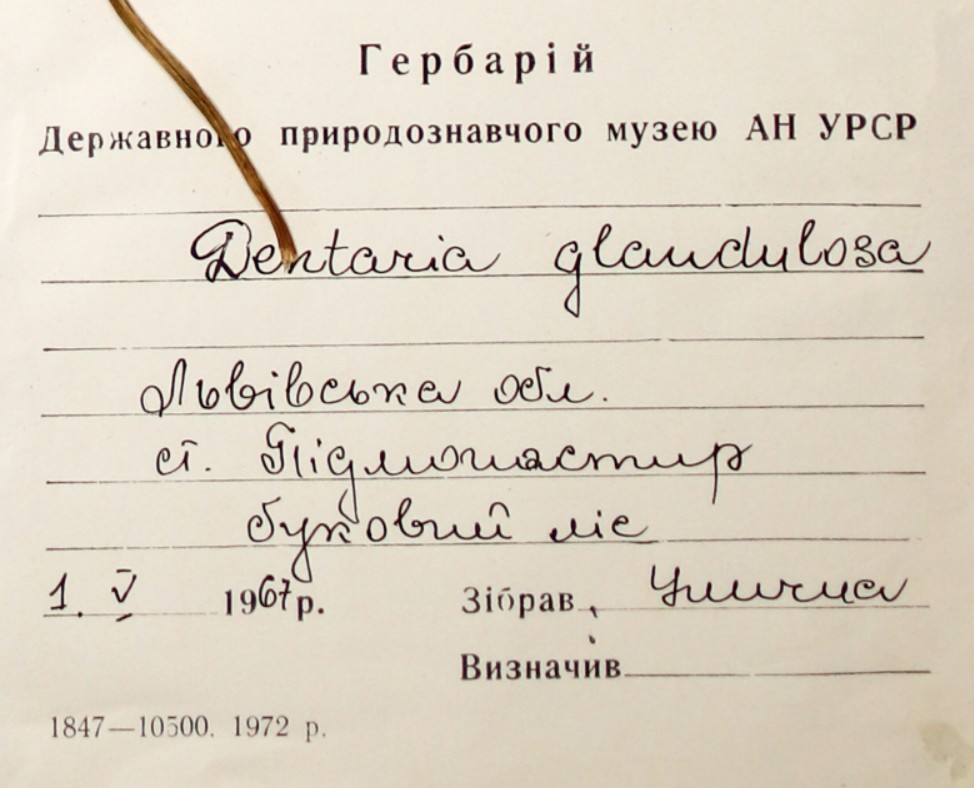 Гербарій
Державного природознавчого музею АН УРСР
Dentaria glandulosa
Львівська обл.
ст. Підмонастир
буковий ліс
1. V 1967 р. Зібрав
Визначив
1847—10500. 1972 р.